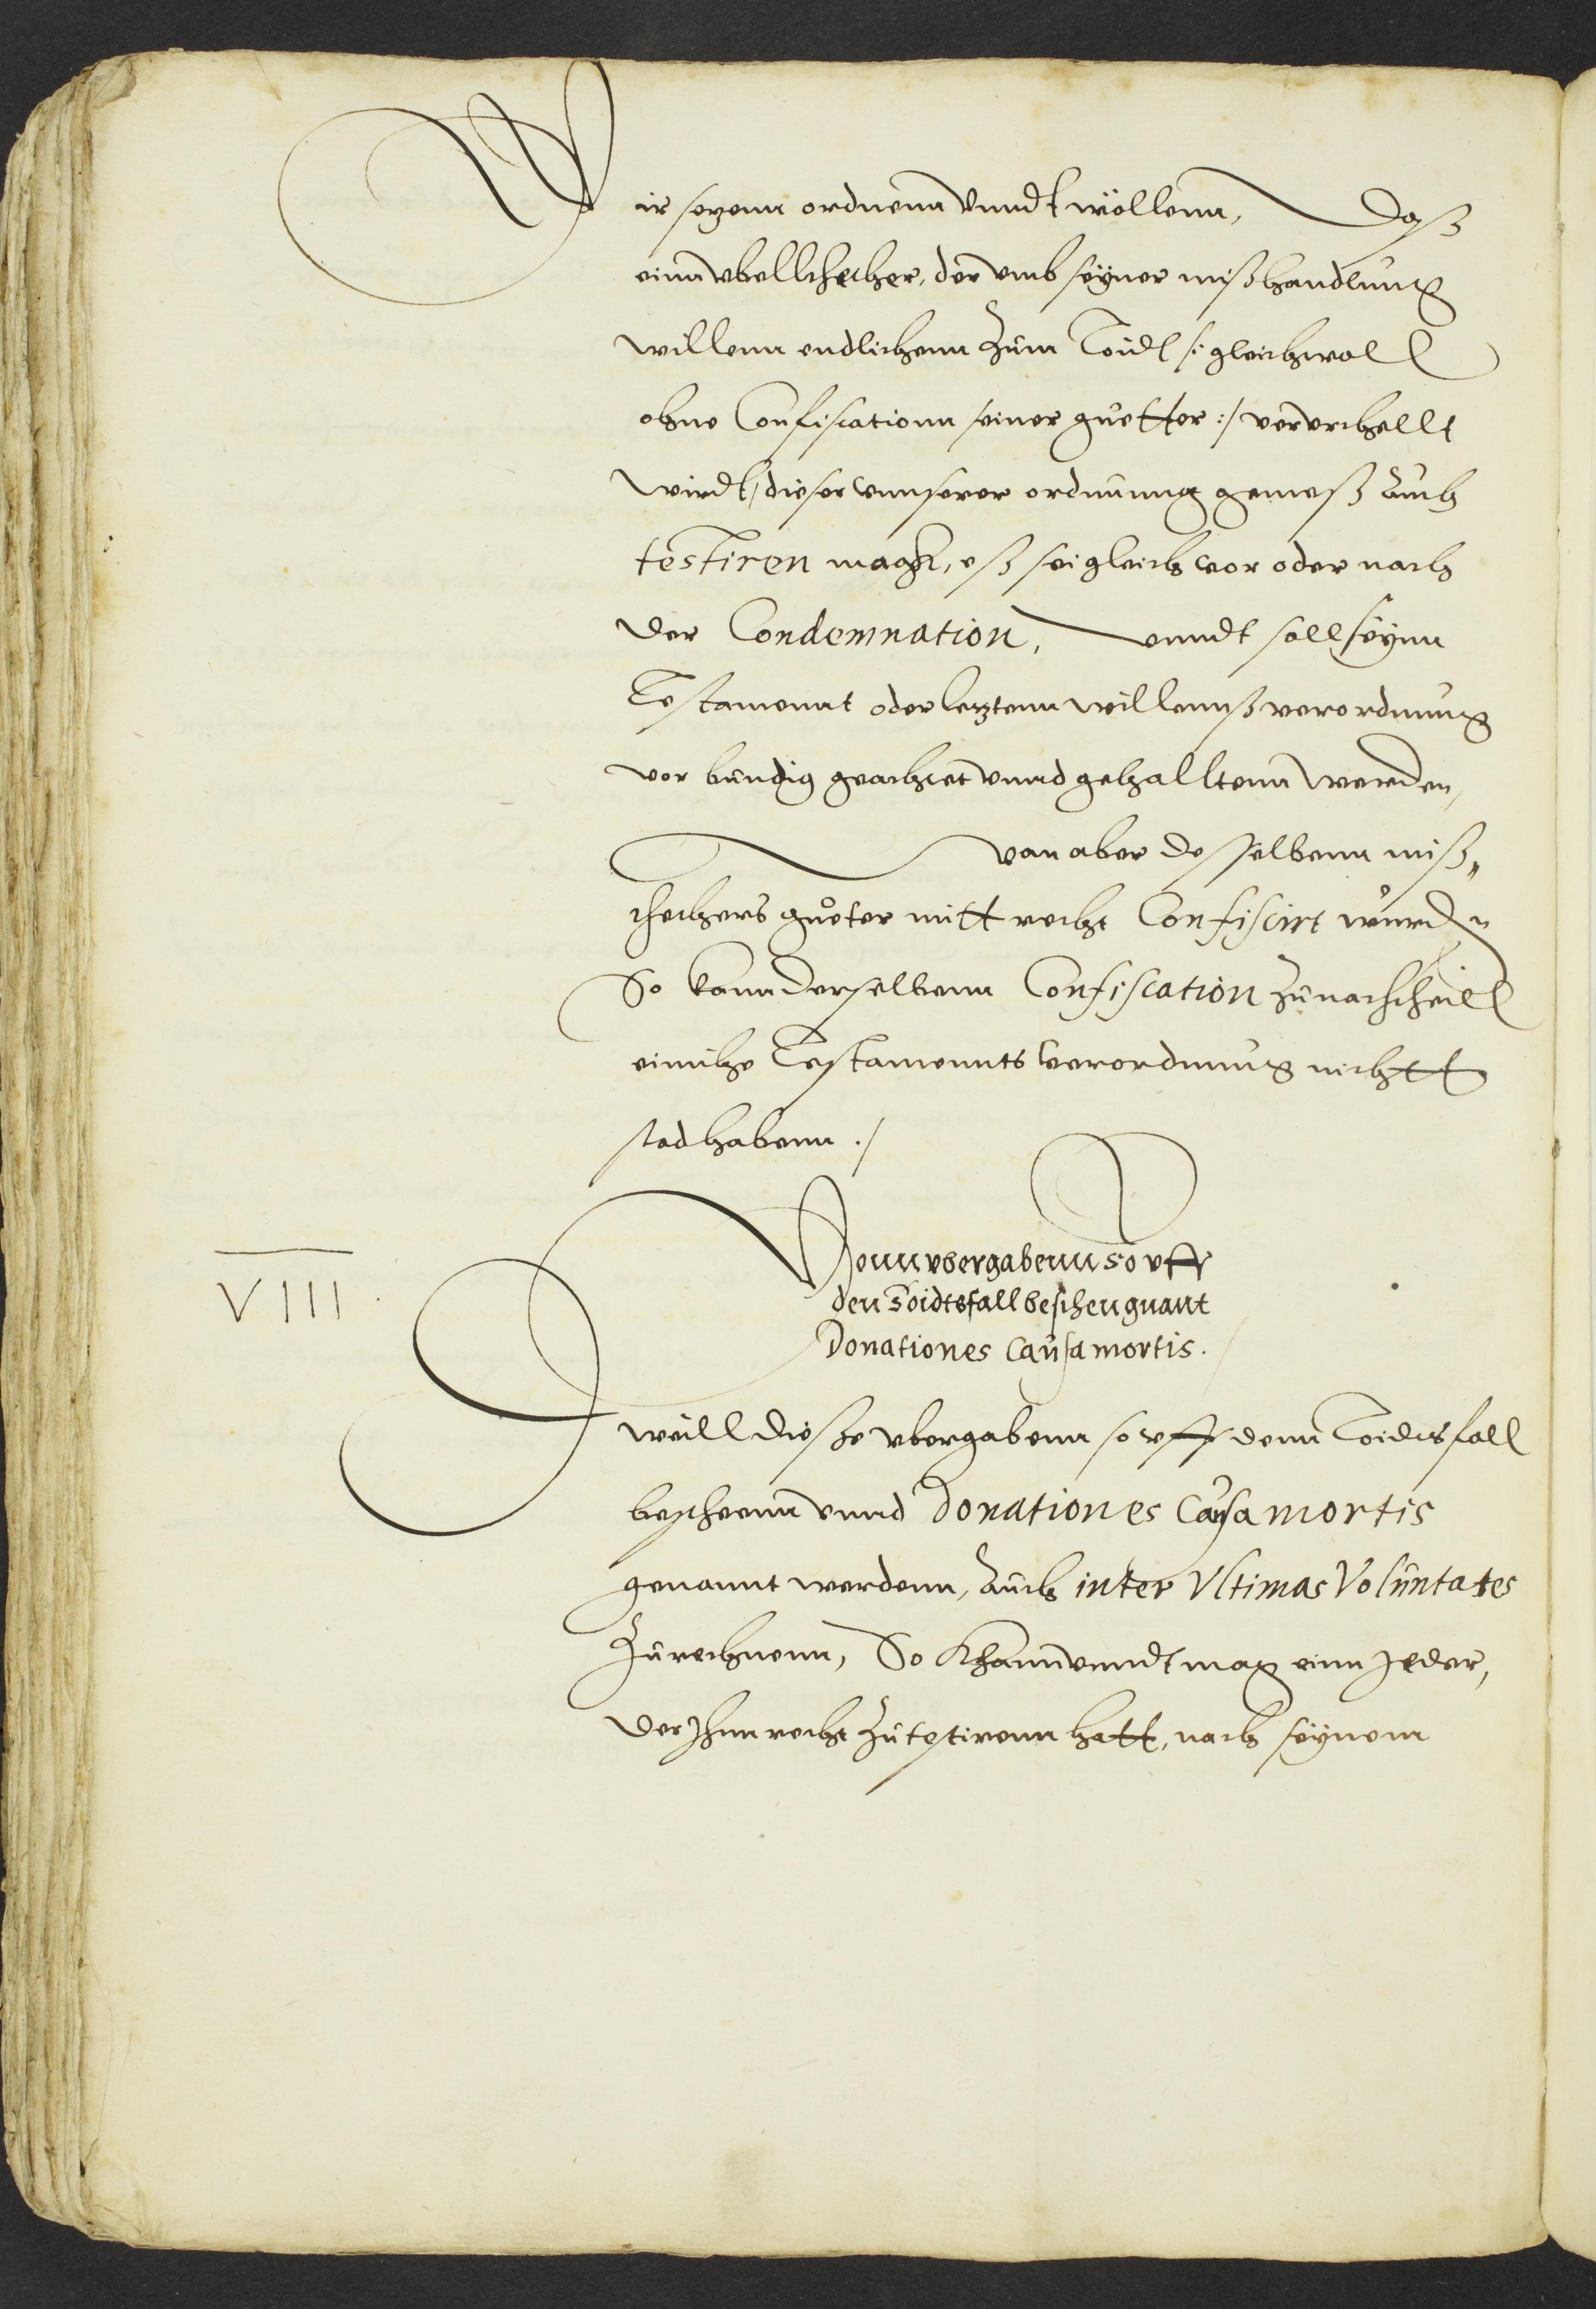 Wir sezenn ordnenn vnndt wöllenn, Daß
einn vbellthetter, der vmb seyner mißhandlung
willenn endlichenn zum Toidt /: gleichwoll
ohne Confiscationn seiner guetter :/ vervrthellt
wirdt, dieser vnnserer ordnung gemeß auch
testiren magh, eß sei gleich vor oder nach
der Condemnation, vnndt soll seynn
Testamennt oder letztenn willennß verordnung
vor bundig geachtet vnnd gehalltenn werden,
wan aber desselbenn miß„
thetters gueter mitt recht Confiscirt wurden
So kann derselbenn Confiscation zu nachtheill
einiche Testamennts verordnung nichtt
stad habenn ./
VIII.
Vonn vbergabenn so vff
den Toidtsfall beschen gnant
Donationes Causa mortis.
Weill dieße vbergabenn so vff denn Toidtsfall
bescheenn vnnd Donationes Causa mortis
genannt werdenn, auch inter Vltimas Voluntates
zu rechnenn, So khann vnndt mag einn Jeder,
der Ihnn recht zu testirenn hatt, nach seynem